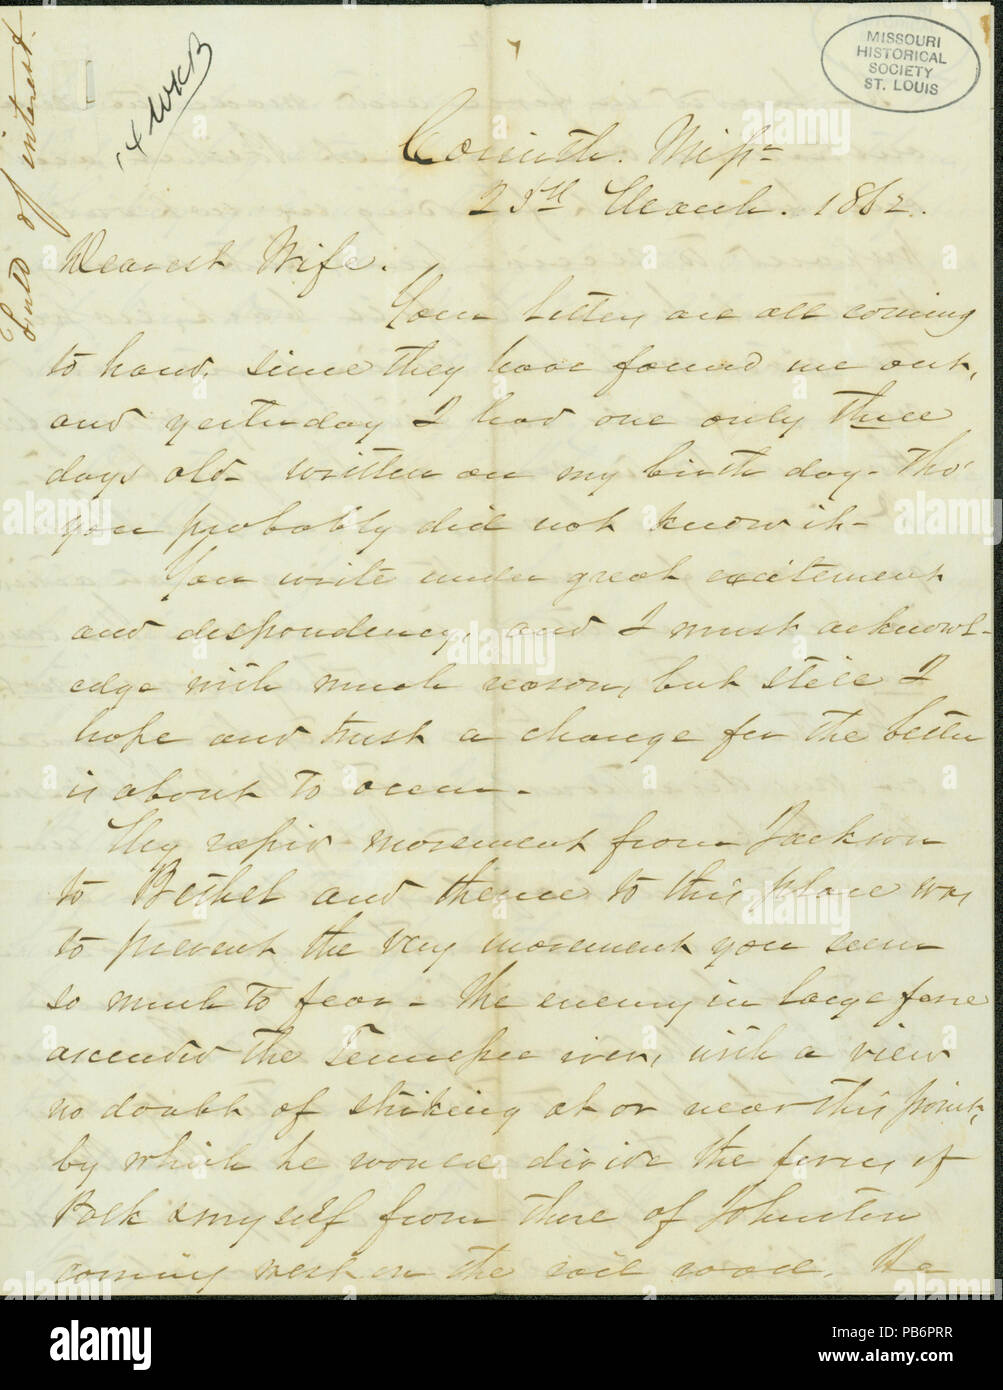 Full of interest.
14 WKB
MISSOURI
HISTORICAL
SOCIETY
ST. LOUIS
Corinth. Miss=
25th March. 1862.
Dearest Wife.
Your letters are all coming
to hand, since they have found me out,
and yesterday I had one only three
days old - written on my birth day - tho'
you probably did not know it -
You write under great excitement
and despondency, and I must acknowl-
edge with much reason, but still I
hope and trust a change for the better
is about to occur -
My rapid movement from Jackson
to Bethel and thence to this place was
to prevent the very movement you seem
so much to fear - The enemy in large force
ascended the Tennessee river, with a view
no doubt of striking at or near this point,
by which he would divide the forces of
Polk & myself from those of Johnston
coming west on the rail road. He
alamy
alamy
Image ID: PB6PRR
www.alamy.com